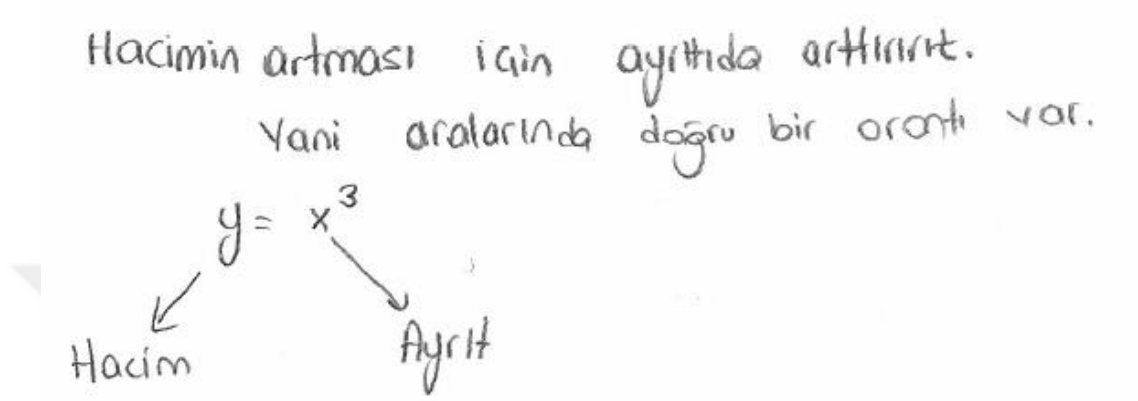 Hacimin artması için ayrıtıda arttırırız.
Yani aralarında doğru bir orantı var.
y = x³
Hacim
Ayrıt